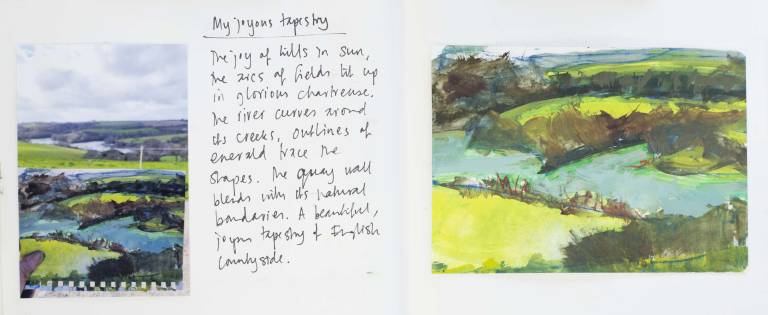 My joyous tapestry
The joy of hills in sun,
the arcs of fields lit up
in glorious chartreuse.
The river curves around
its creeks, outlines of
emerald trace the
shapes. The quay wall
blends with its natural
boundaries. A beautiful,
joyous tapestry of English
countryside.